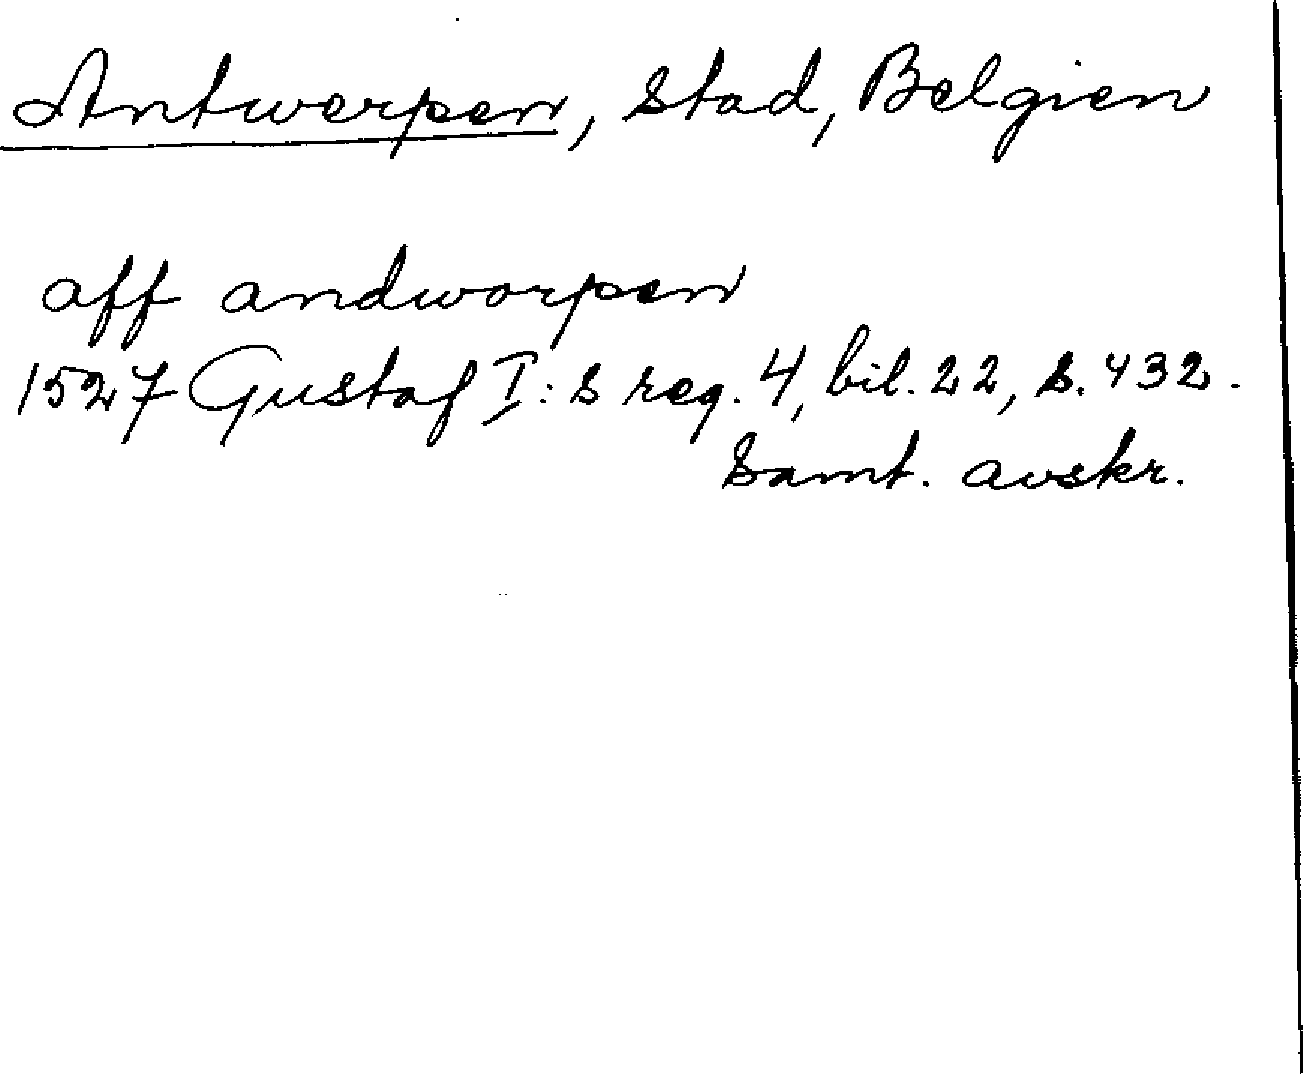 Antwerpen, stad, Belgien
aff andworpen
1527 Gustaf I:s reg. 4, bil. 22, s. 432.
Samt. avskr.